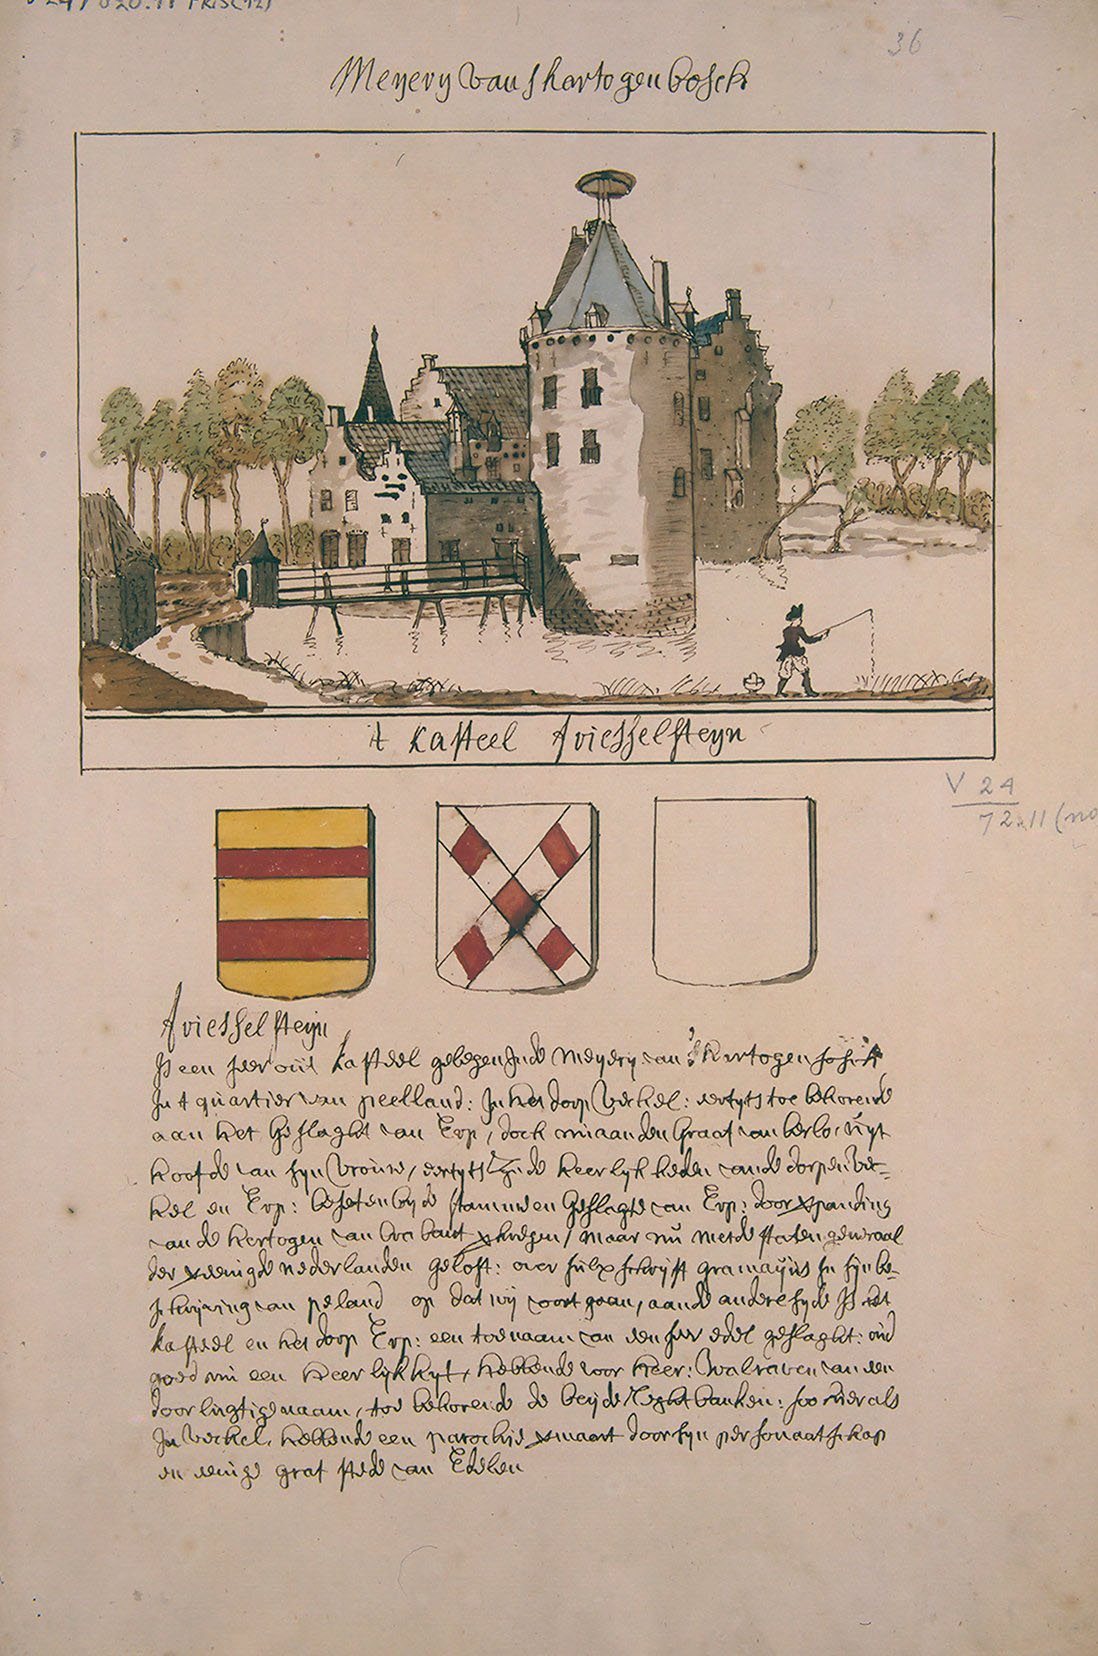 36
Meyery van shartogenbosch
t kasteel Friesselsteyn
V 24
72.11 (no
Friesselsteyn
Is een seer out kasteel gelegen Inde Meyery van 's Hertogenbosch
In t quartier van peelland: In het dorp Verkel: eertyts toe behorende
aan het geslaght van Erp, doch nu aan den Graaf van berlo, uyt
hoofde van syn vrouwe, eertyts de heerlykheden vande dorpen Ver=
kel en Erp: beseten by de stamme en geslagte van Erp: door verpanding
van de hertogen van braband verkregen, maar nu met de staten generaal
der vereenigde nederlanden gelost: over sulx schryft gramayus In syn be=
schryving van peland op dat wy voort gaan, aande andere syde Is het
kasteel en het dorp Erp: een toenaam van een seer edel geslaght: oud
goed nu een heerlykhyt, hebbende voor heer: Walraven van een
doorlugtige naam, toe behorende de beyde Reght banken: soo hier als
In Verkel, hebbende een parochie vermaert door syn personaatschap
en eenige graf stede van Edelen